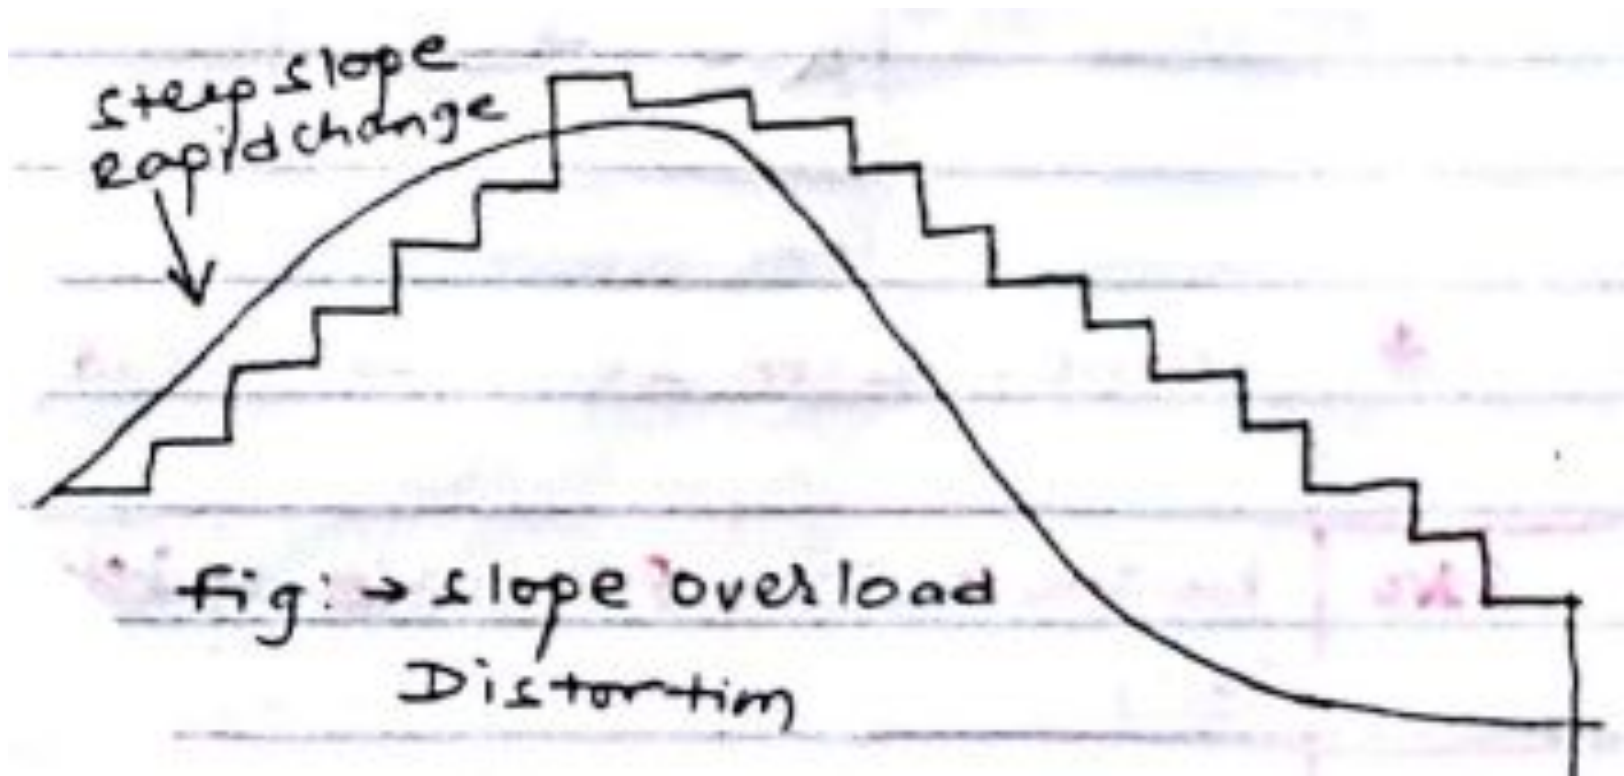 steep slope
rapid change
fig: → slope overload
Distortion